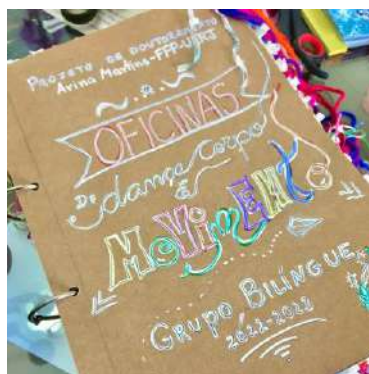 PROJETO DE DOUTORAMENTO
Arina Martins-FFP-UERJ
OFICINAS
De dança Corpo
E
MOVIMENT
GRUPO BILÍNGUE
2022-2023